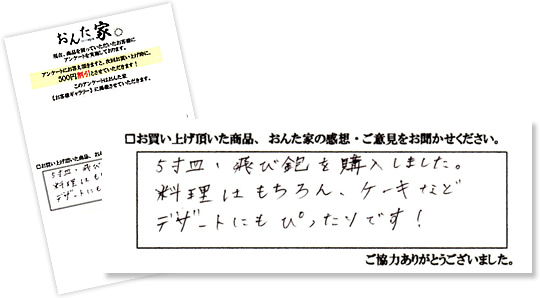 おんた家。
現在、商品を買っていただいたお客様に
アンケートを実施しております。
アンケートにお答え頂きますと、次回お買い上げ時に、
500円割引とさせていただきます!
このアンケートはおんた家
【お客様ギャラリー】に掲載させていただきます。
□お買い上げ頂いた商品、おん
5寸皿・飛び
料理はも
デザートにも
□お買い上げ頂いた商品、おんた家の感想・ご意見をお聞かせください。
5寸皿・飛び鉋を購入しました。
料理はもちろん、ケーキなど
デザートにもぴったりです!
ご協力ありがとうございました。